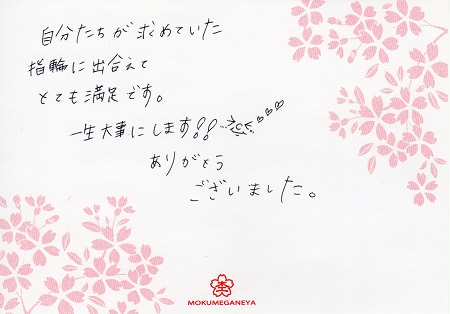 自分たちが求めていた
指輪に出合えて
とても満足です。
一生大事にします!!
ありがとう
ございました。
MOKUMEGANEYA